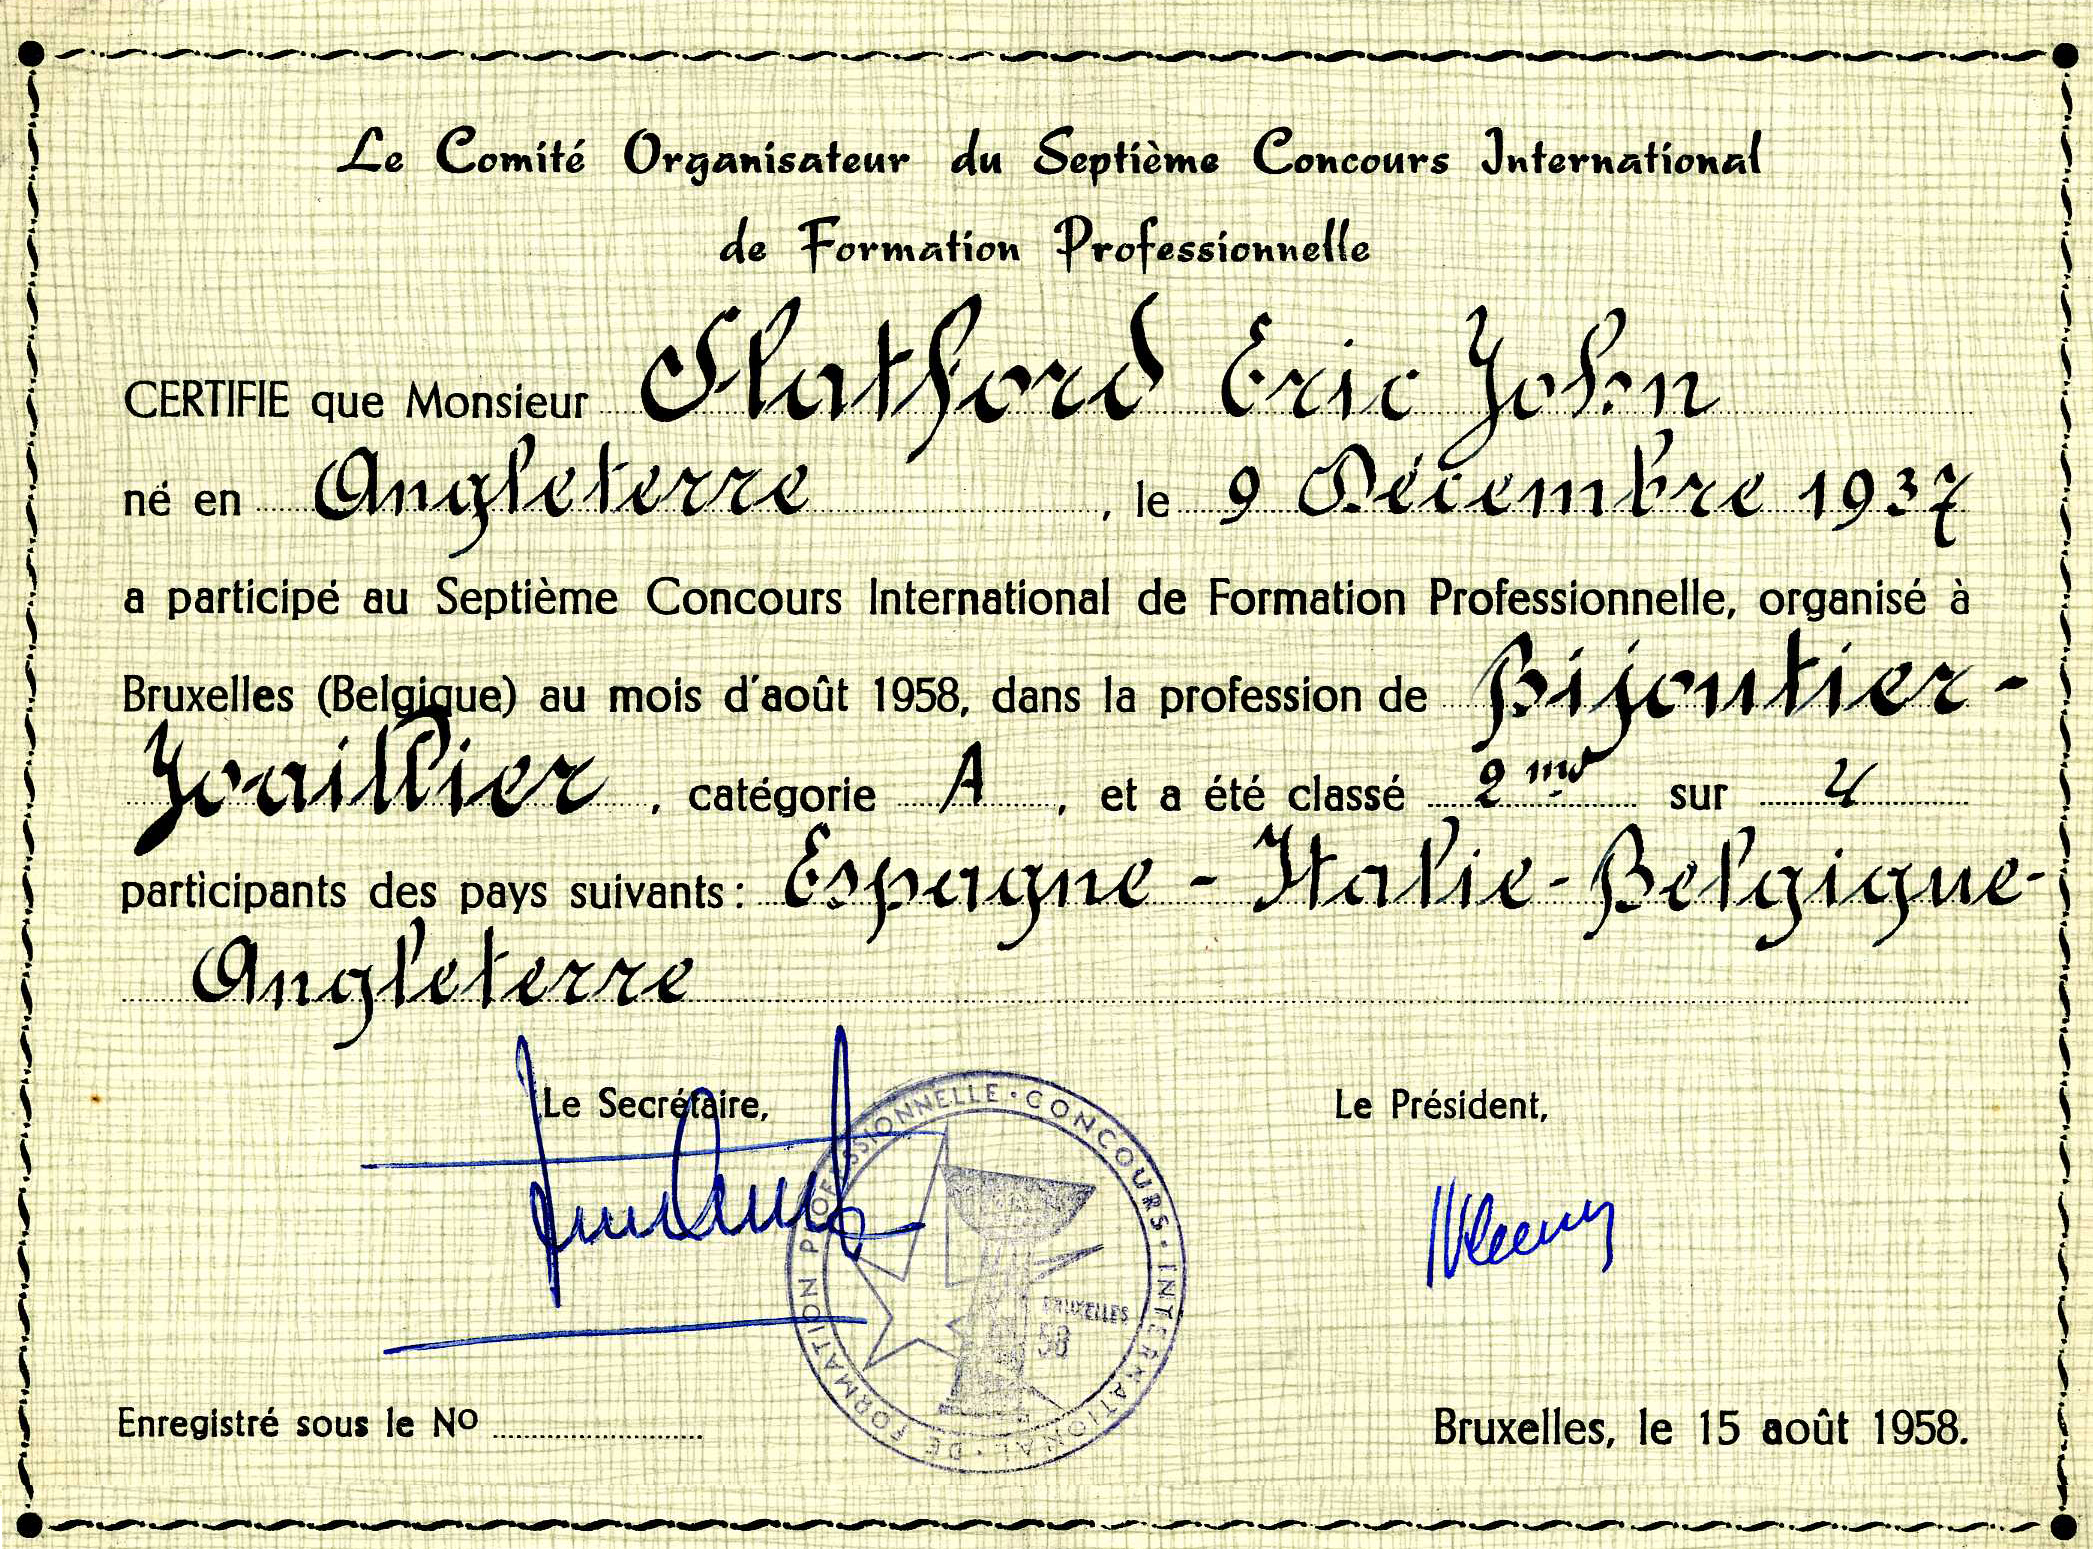 Le Comité Organisateur du Septième Concours International
de Formation Professionnelle
CERTIFIE que Monsieur Slatford Eric John
né en Angleterre, le 9 Décembre 1937
a participé au Septième Concours International de Formation Professionnelle, organisé à
Bruxelles (Belgique) au mois d'août 1958, dans la profession de Bijoutier-
Joaillier, catégorie A, et a été classé 2me sur 4
participants des pays suivants: Espagne - Italie - Belgique -
Angleterre
Le Secrétaire,
Le Président,
CONCOURS · INTERNATIONAL · DE FORMATION PROFESSIONNELLE ·
BRUXELLES
58
Enregistré sous le No
Bruxelles, le 15 août 1958.